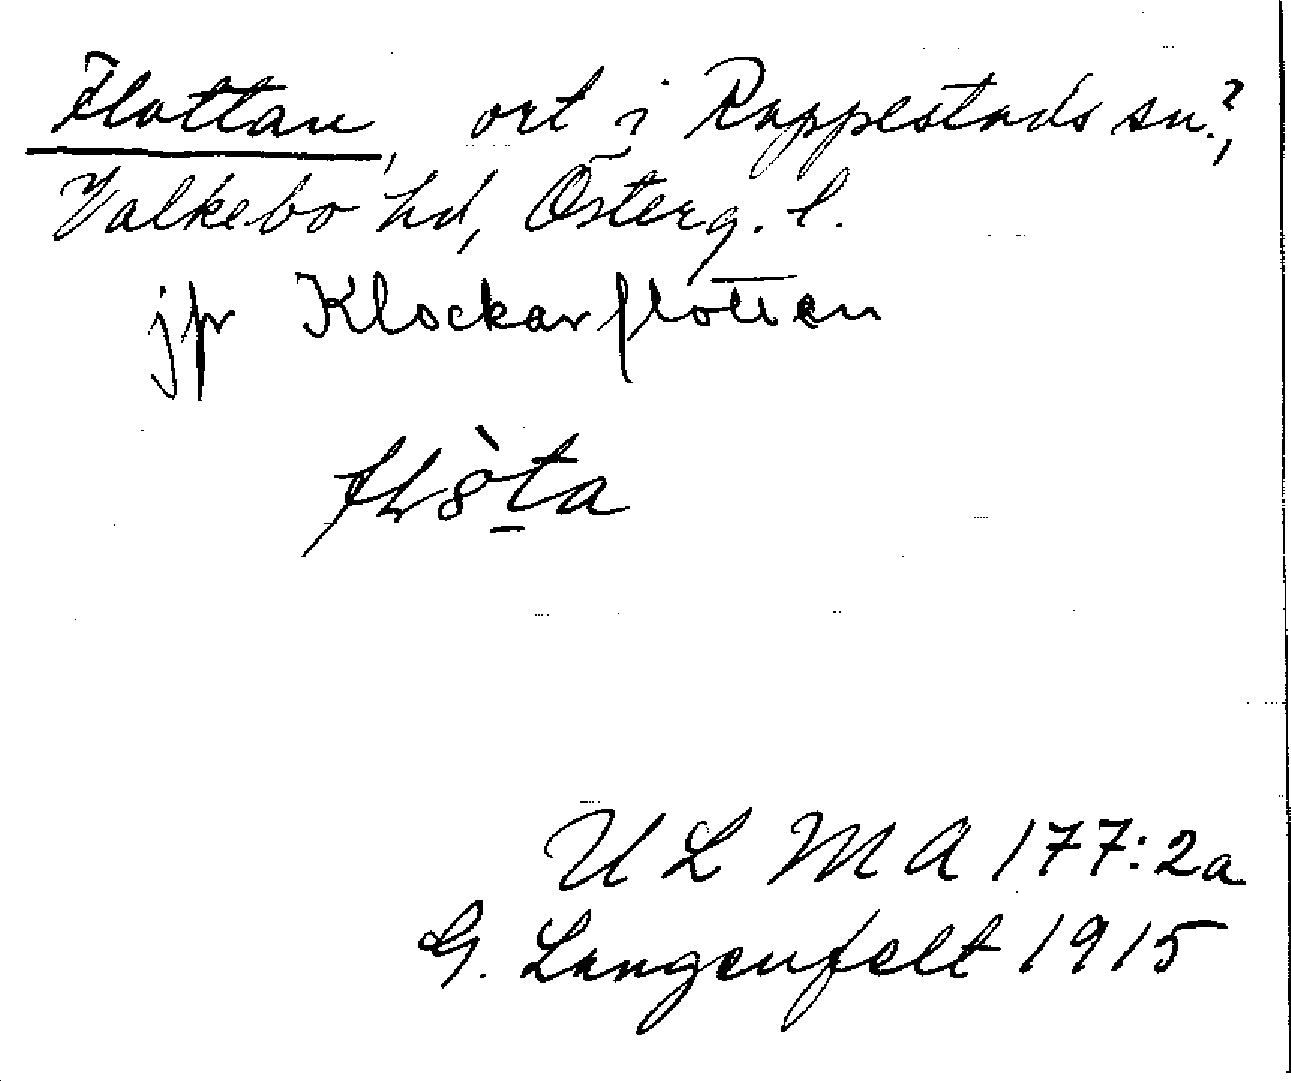 Flottan, ort i Rappestads sn?,
Valkebo hd, Österg. l.
jfr Klockarflotten
UL M A 177:2a
G. Langenfelt 1915